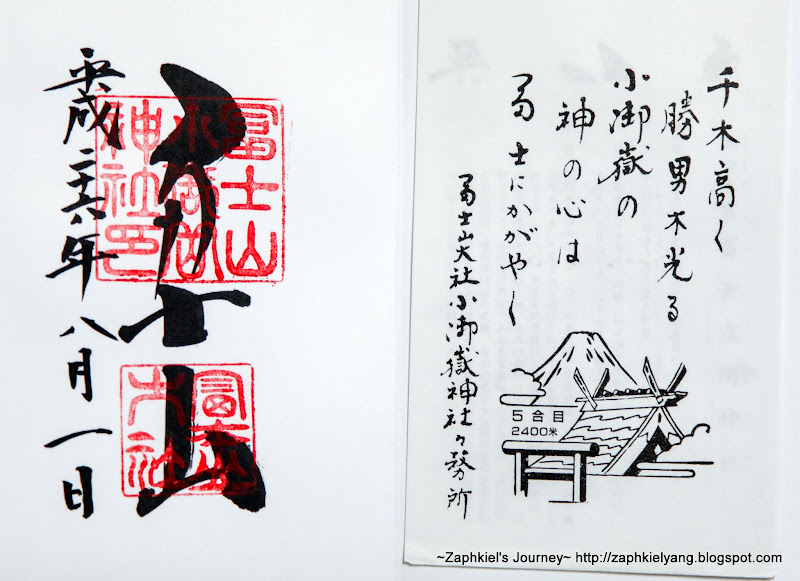 冨士山
平成二十六年 八月一日
冨士山
小御嶽
神社印
千木高く
勝男木光る
小御嶽の
神の心は
冨士にかがやく
冨士山大社小御嶽神社々務所
5合目
2400米
~Zaphkiel's Journey~ http://zaphkielyang.blogspot.com/